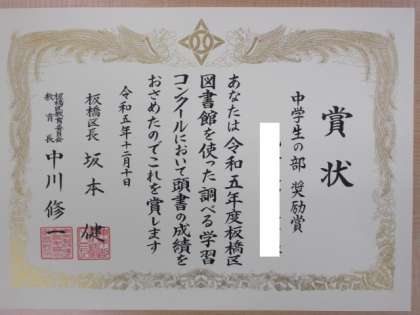 賞状
中学生の部 奨励賞
あなたは令和五年度板橋区
図書館を使った調べる学習
コンクールにおいて頭書の成績を
おさめたのでこれを賞します
令和五年十二月十日
板橋区長 坂本 健
板橋区教育委員会
教育長 中川 修一